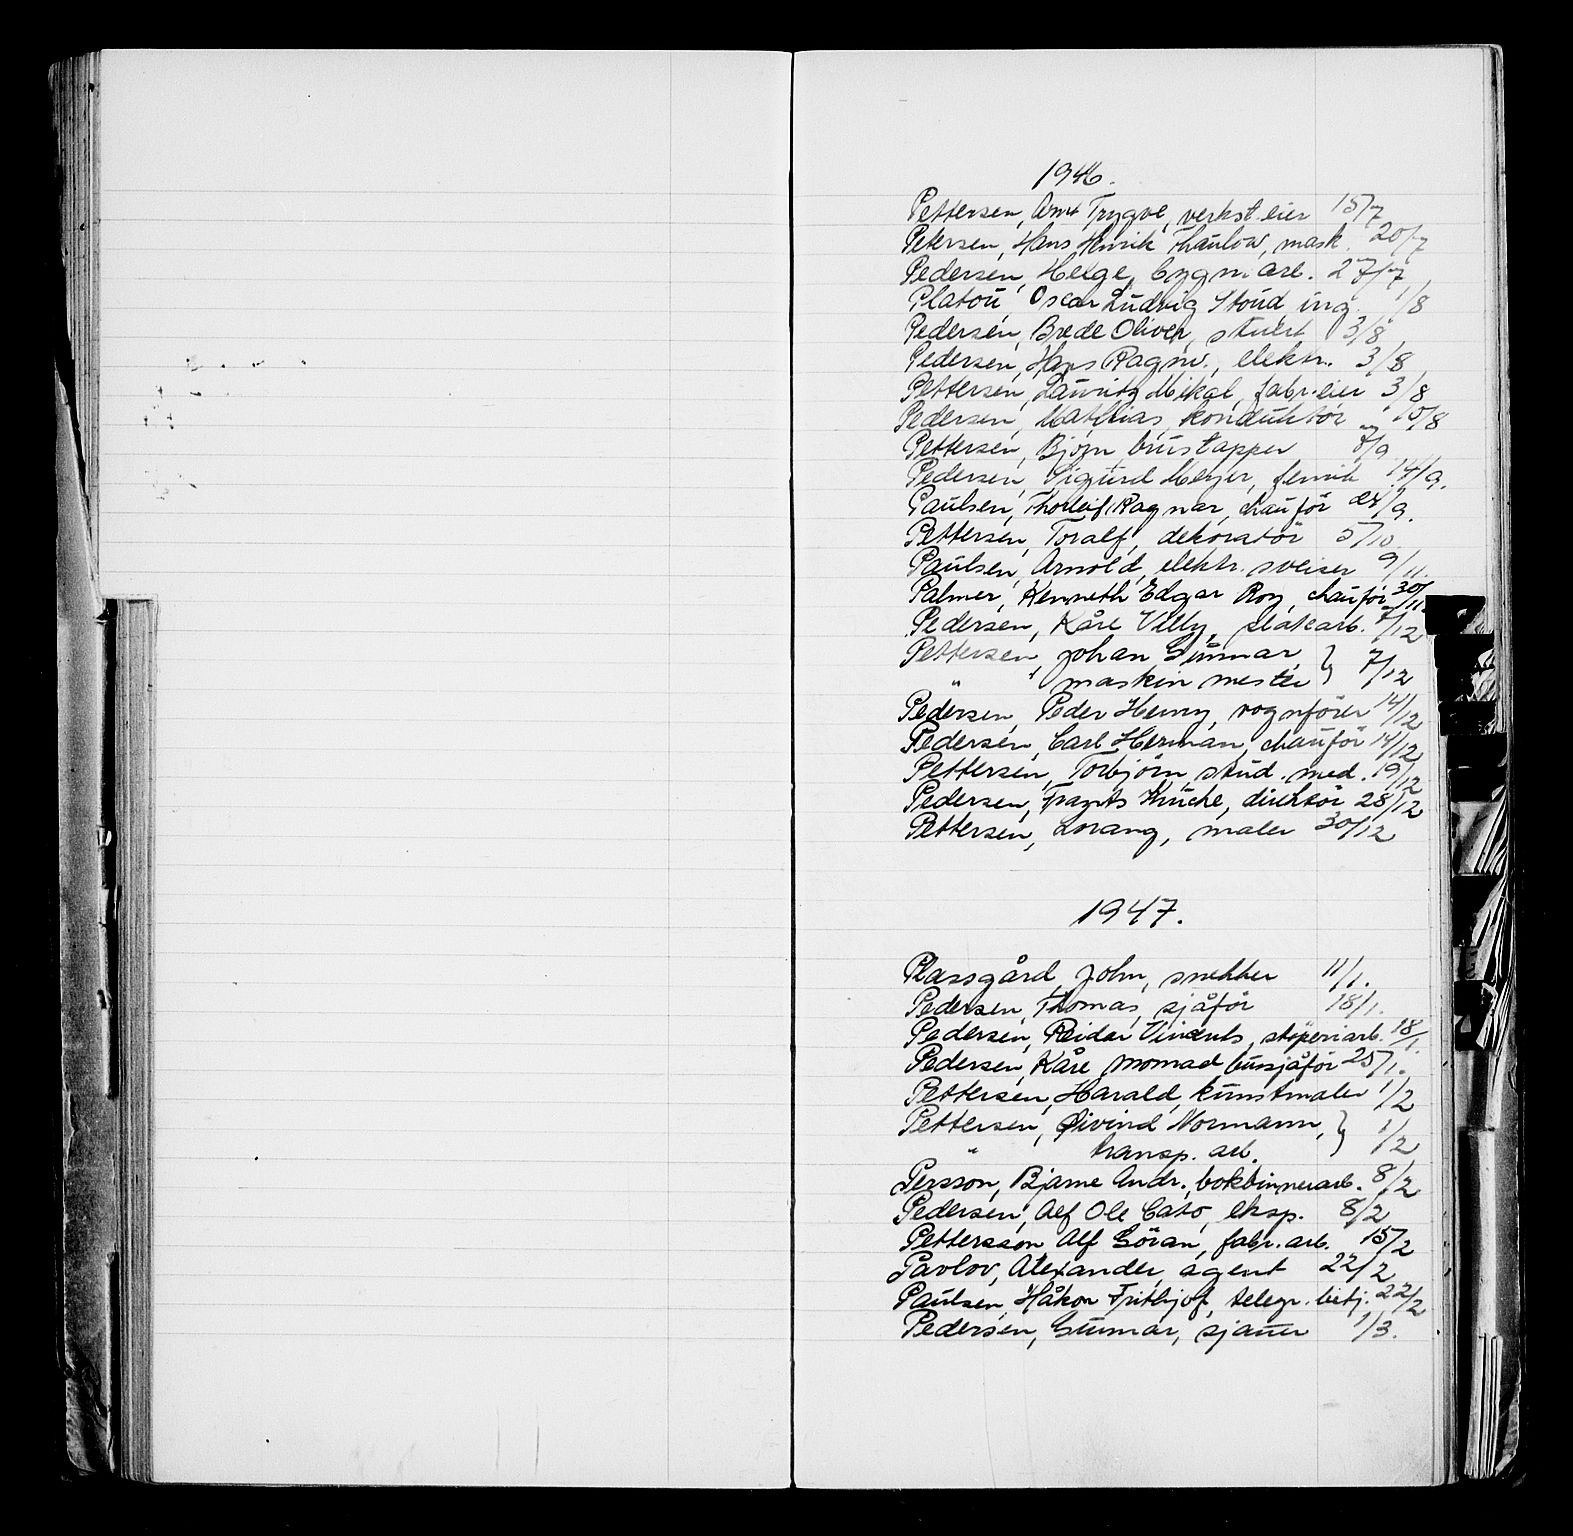 1946.
Pettersen, Arnt Trygve, verkst.eier 15/7
Petersen, Hans Henrik Thaulow, mask. 20/7
Pedersen, Helge, bygn.arb. 27/7
Platou, Oscar Ludvig Stoud, ing. 1/8
Pedersen, Brede Oliver, stuert 3/8
Pedersen, Hans Ragnv., elektr. 3/8
Pettersen, Lauritz Mikal, fabr.eier 3/8
Pedersen, Mathias, konduktör 10/8
Pettersen, Björn, brustapper 7/9
Pedersen, Sigurd Meyer, fenrik 14/9.
Paulsen, Thorleif Ragnar, chauför 9.
Pettersen, Toralf, dekoratör 5/10
Paulsen, Arnold, elektr. sveiser 9/11
Palmer, Kenneth Edgar Roy, chauför 30/11
Pedersen, Kåre Villy, platearb. 7/12
Pettersen, Johan Gunnar, } 7/12
" " maskinmester
Pedersen, Peder Henry, vognförer 14/12
Pedersen, Carl Herman, chauför 14/12
Pettersen, Torbjörn, stud. med. 19/12
Pedersen, Frants Kruche, direktör 28/12
Pettersen, Lorang, maler 30/12
1947.
Plassgård, John, snekker 11/1.
Pedersen, Thomas, sjåför 18/1.
Pedersen, Reidar Vincents, stöperiarb. 18/1
Pedersen, Kåre Monrad, bussjåför 25/1.
Pettersen, Harald, kunstmaler 1/2
Pettersen, Øivind Normann, } 1/2
" transp. arb.
Persson, Bjarne Andr., bokbinnerarb. 8/2
Pedersen, Alf Ole Cato, eksp. 8/2
Pettersson Alf Göran, fabr. arb. 15/2
Pavlov, Alexander, agent 22/2
Paulsen, Håkon Frithjof, telegr. betj. 22/2
Pedersen, Gunnar, sjauer 1/3.